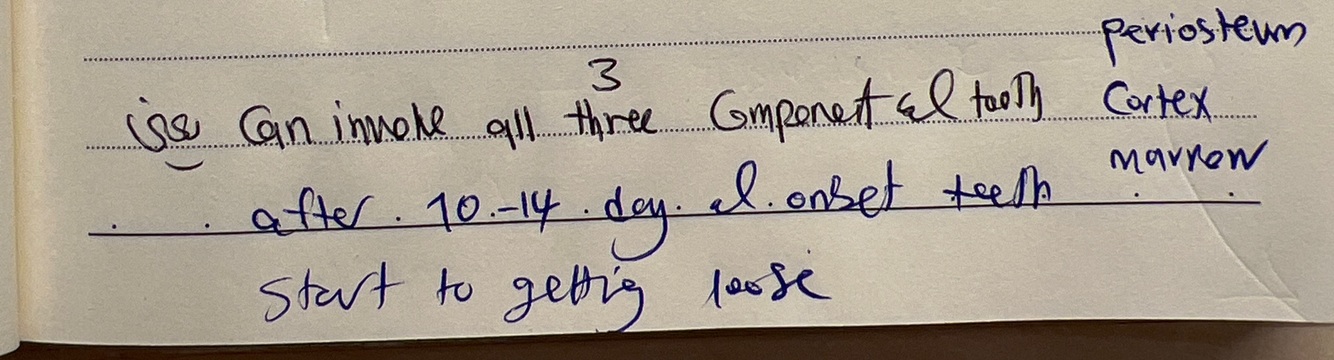 periosteum
3
Can invoke all three Component of tooth Cortex
marrow
after 10-14 day of onset teeth
start to getting loose